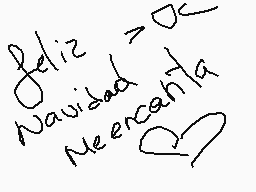 feliz
Navidad
Meencanta